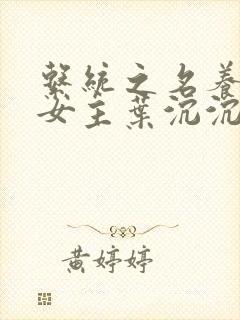 繫統之名養
女主葉沉沉
黃婷婷